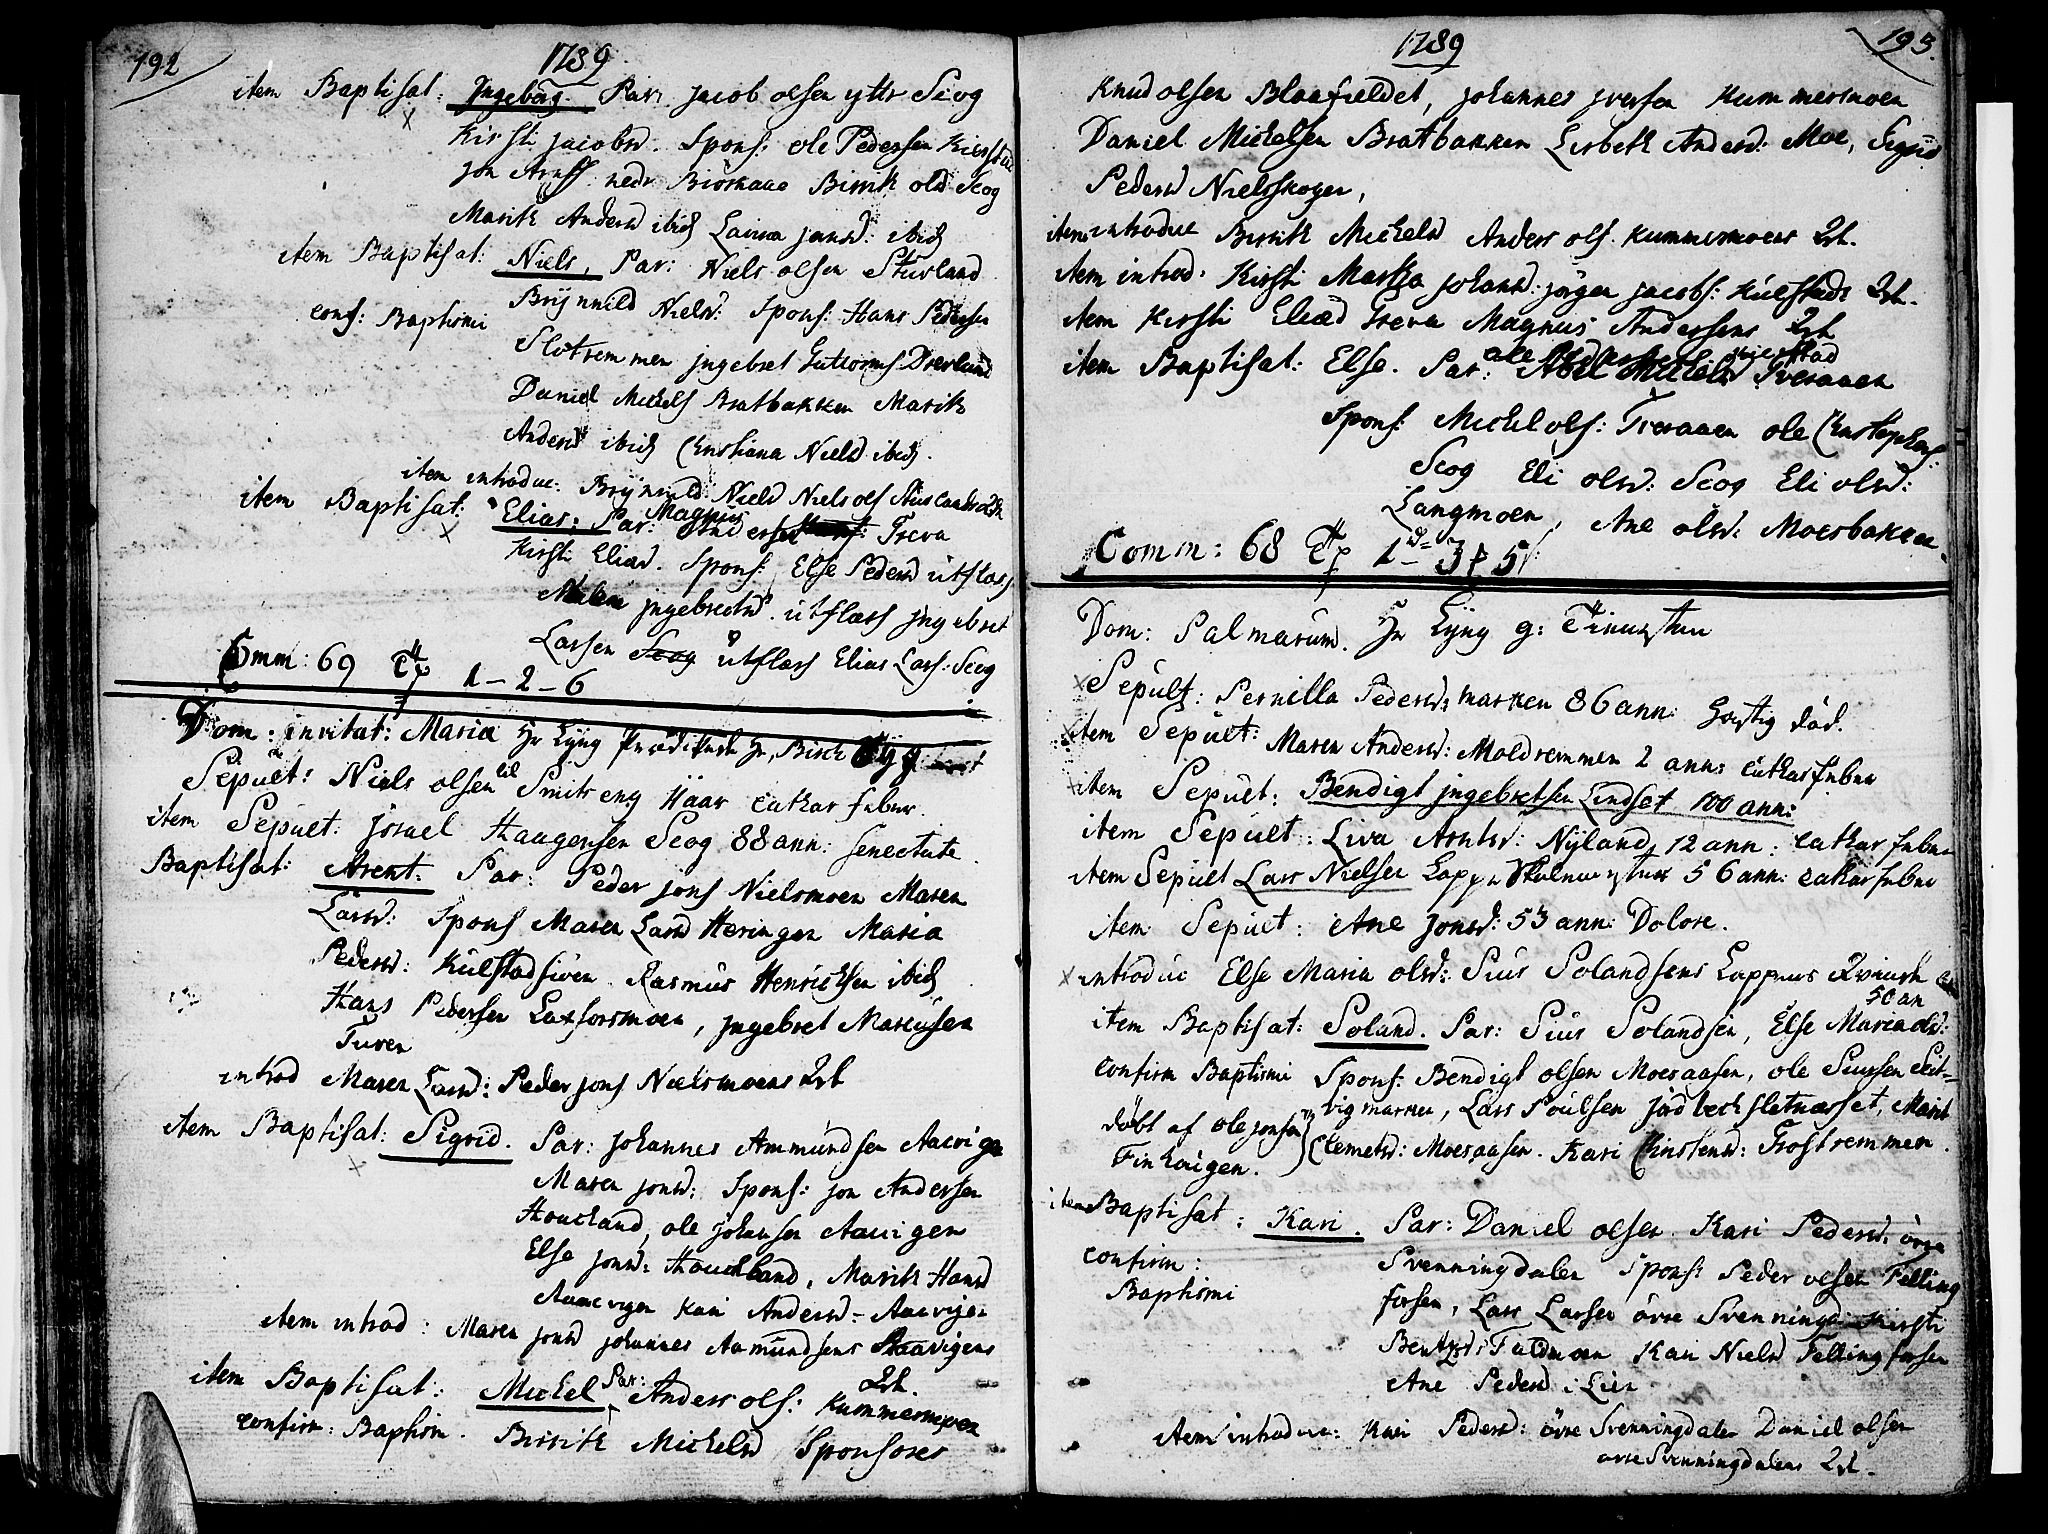 192
1789
item Baptisat: Ingeborg. Par: Jacob olsen yttr Scog
Kirsti Jacobsd. Spons: ole Pedersen Kierstad
Jon nedr Biornaae Birrit olsd Scog
Marit Andersd ibid Lairca jonsd: ibid
item Baptisat: Niels, Par: Niels olsen Sturland
conf: Baptismi Brÿnnild Nielsd: Spons: Hans Pedersen
Slotremmen jngebret Guttorms. Drevland
Daniel Michels Bratbakken Marit
Andersd ibid Christiana Nielsd ibid.
item introduc: Brÿnnild Nielsd Niels ols
item Baptisat: Elias: Par: Magnus Andersen Treva
Kirsti Eliasd. Spons: Else Pedersd utflass
Malen jngebrectsd utflass jngebret
Larsen Scog utflass Elias Lars: Scog
Comm: 69 1 – 2 – 6
Dom: invitat: Maria Hr Lÿng Hr, Bisch
Sepult: Niels olsen lil Smitseng Haar cathar febur.
item Sepult: Jsrael Haagensen Scog 88 ann: senectute.
Baptisat: Arent. Par: Peder jons Nielsmoen Maren
Larsd: Spons Maren Larsd Heringen Maria
Pedersd: Kulstadsiøen Rasmus Henrichsen ibid
Hans Pedersen Laxforsmoen, jngebret Marcusen
Turen
introd Maren Larsd: Peder jons Nielsmoens 2rt
item Baptisat: Sigrid. Par: Johannes Ammundsen Aacvigen
Maren jonsd: Spons: jon Andersen
Houcland, ole johansen Aacvigen
Else jonsd: Houcland, Marit Hansd
Aacvigen Kari Andersd – Aacvigen
item introd: Maren jonsd johannes Amundsens Aacvigens
2rt.
item Baptisat: Mickel Par: Anders ols: Kummermoen
confirm: Baptism. Birrit Michelsd Sponsores
193.
1789
Knud olsen Blaafieldet, johannes jversen Kummermoen
Daniel Michelsen Bratbakken Lisbeth Andersd: Moe, Sigrid
Pedersd Nielsskogen,
item introduc Birrit Michelsd Anders ols. Kummermoens 2rt.
item introd: Kirsti Martha johansd: jörgen jacobs: Kulstads 2rt.
item Kirsti Eliæd Treva Magnus Andersens 2rt
item Baptisat: Else. Par: ole Abel Michelsd Tveraaen
Spons: Michel ols: Tveraaen ole Christophers:
Scog Eli olsd: Scog Eli olsd:
Langmoen, Ane olsd: Moesbakken
Comm: 68 1 – 3 5
Dom: Palmarum. Hr Lÿng g:
Sepult: Pernilla Pedersd: marken 86 ann: hastig død.
item Sepult: Maren Andersd: Moldremmen 2 ann: cathar febur
item Sepult: Bendigt jngebretsen Lindset 100 ann:
item Sepult: Liva Arntsd: Nÿland, 12 ann: cathar febur
item Sepult Lars Nielsen 56 ann: cathar febur
item Sepult: Ane Jonsd: 53 ann: Dolore.
introduc Else Maria olsd: Siur Solandsens Lappens Qvinde
50 an
item Baptisat: Soland. Par: Siur Solandsen, Else Maria olsd:
confirm Baptismi Spons: Bendigt olsen Moesaasen, ole Siursen
døbt af ole jonsen vigmarken, Lars Poulsen Marit
Finhaugen. Clemetsd: Moesaasen. Kari Christensd: Trostremmen.
item Baptisat: Kari. Par: Daniel olsen. Kari Pedersd: övre
confirm: Svenningdalen Spons: Peder olsen Felling
Baptismi forsen, Lars Larsen övre Svenningd: Kirsti
Bentsd: Faldmoen Kari Nielsd Fellingforsen
Ane Pedersd i Lien
item introduc: Kari Pedersd: övre Svenningdalen Daniel olsen
ovre Svenningdalens 2rt.